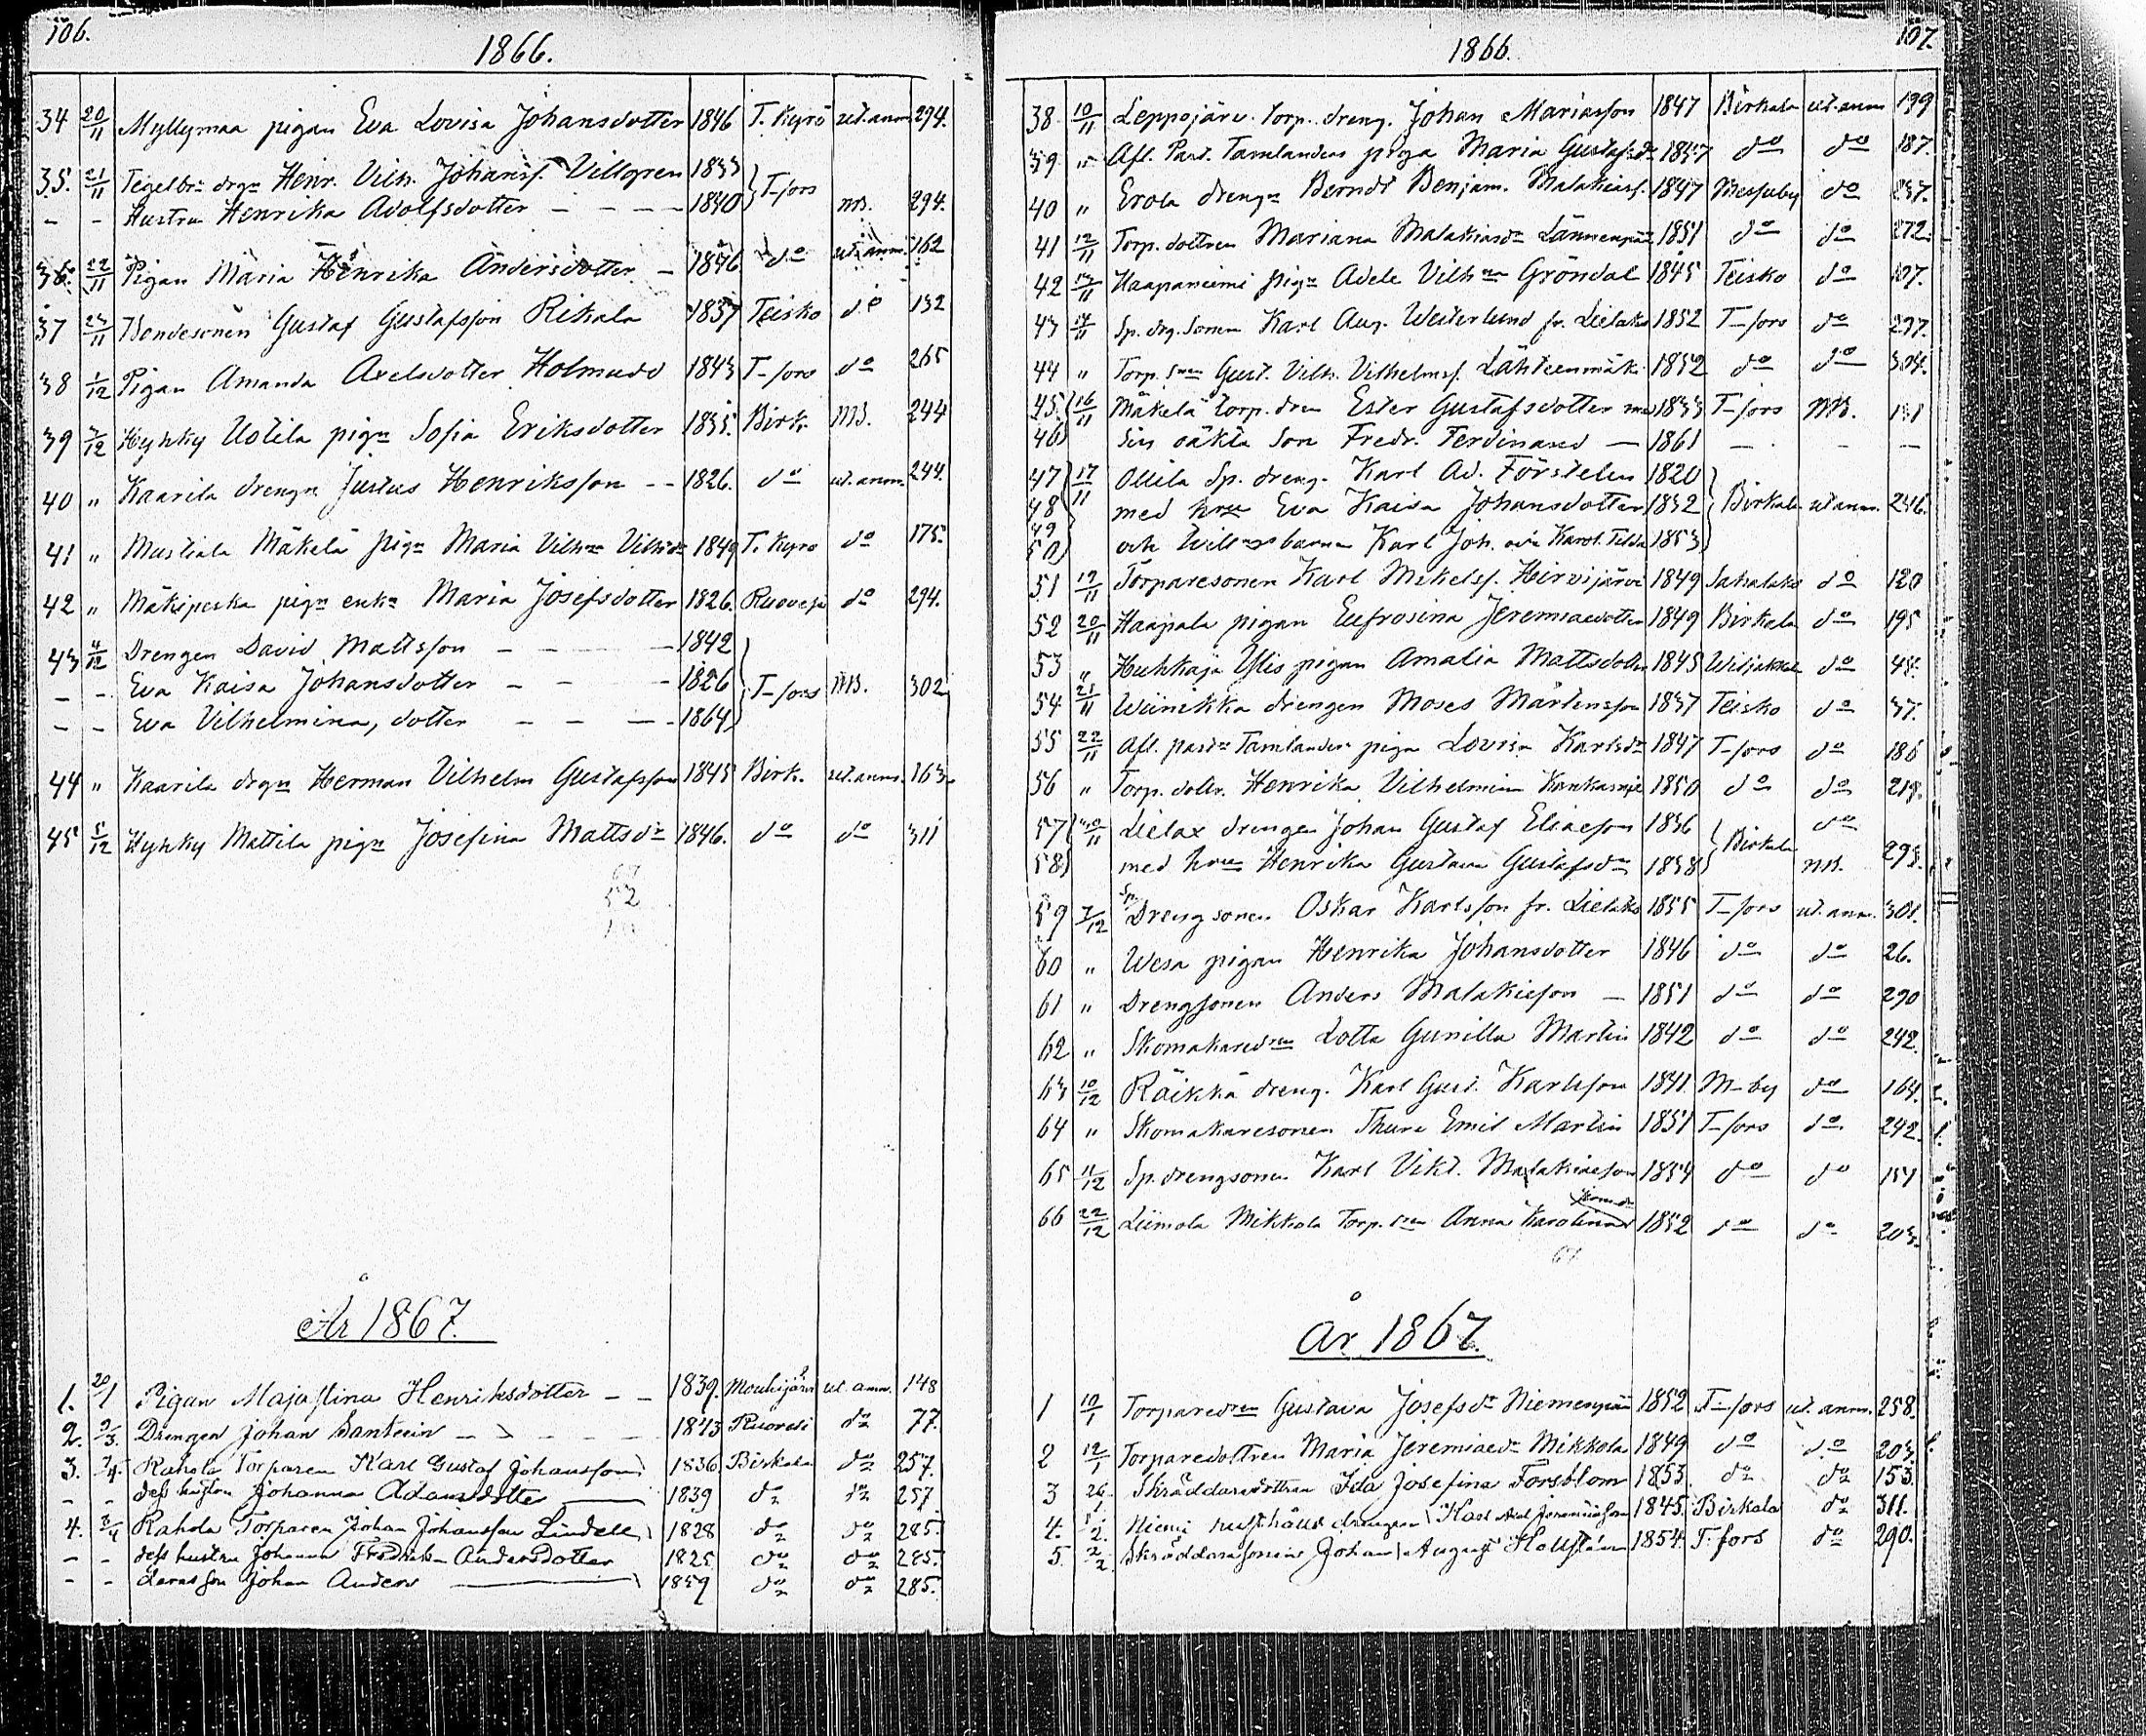 106.
1866.
34 20/11 Myllymaa pigan Eva Lovisa Johansdotter 1846 T. Kyrö ut. anm. 294.
35. 21/11 Tegelbr. drgn Henr. Vilh. Johanss. Villgren 1833 T-fors
- - Hustru Henrika Adolfsdotter - - - - 1840 NB. 294.
36. 22/11 Pigan Maria Henrika Andersdotter - 1846 do ut. anm. 162
37 23/11 Bondesonen Gustaf Gustafsson Rikala 1837 Teisko do 132
38 1/12 Pigan Amanda Axelsdotter Holmudd 1843 T-fors do 265
39 3/12 Hyhky Uotila pign Sofia Eriksdotter 1835. Birk. NB. 244
40 " Kaarila drengn Justus Henriksson - - 1826. do ut. anm. 244.
41 " Mustiala Mäkelä pign Maria Vilhna Vilhdr 1849 T. Kyro do 175.
42 " Mäkipeska pign enkn Maria Josefsdotter 1826. Ruovesi do 294.
43 4/12 Drengen David Mattsson - - - - 1842
- - Eva Kaisa Johansdotter - - - 1826 T-fors NB. 302
- - Eva Vilhelmina, dotter - - - 1864
44 " Kaarila drgn Herman Vilhelm Gustafsson 1845 Birk. ut. anm. 163.
45 5/12 Hyhky Mattila pign Josefina Mattsdr 1846. do do 311
52
År 1867.
1. 20/1 Pigan Maja Stina Henriksdotter - - 1839. Mouhijärvi ut. anm. 148
2. 2/3. Drengen Johan Santhein - - - - 1843 Ruovesi do 77.
3. 7/4. Rahola Torparen Karl Gustaf Johansson 1836 Birkala do 257.
- - dess hustru Johanna Adamsdotter 1839 do do 257
4. 8/4 Rahola Torparen Johan Johansson Lindell 1828 do do 285.
- - dess hustru Johanna Fredrika Andersdotter 1825 do do 285.
- - deras son Johan Anders 1859 do do 285.
107.
1866.
38 10/11 Leppojärv. torp. dreng. Johan Mariasson 1847 Birkala ut. anm 199
39 " Afl. Past. Tamlanders piga Maria Gustafsdr 1837 do do 187.
40 " Erola drengn Berndt Benjam. Malakiass. 1847 Messuby do 237.
41 12/11 Torp. dottren Mariana Malakiasdr Lännenpää 1851 do do 272.
42 13/11 Haapaniemi pign Adele Vilhna Gröndal 1845 Teisko do 127.
43 14/11 Sp. drg. sonen Karl Aug. Westerlund fr. Lielaks 1852 T-fors do 297.
44 " Torp. snen Gust. Vilh. Vilhelmss. Lähteenmäki 1852 do do 304.
45 16/11 Mäkelä torp. dren Ester Gustafsdotter med 1833 T-fors NB. 131
46 sin oäkta son Fredr. Ferdinand - 1861 - - -
47 17/11 Ollila Sp. dreng. Karl Ad. Förstelin 1820
48 med hru Eva Kaisa Johansdotter 1832 Birkala ut anm. 246.
49
50 och barnen Karl Joh. och Karol. Tilda 1853
51 19/11 Torparesonen Karl Mikelss. Hirvijärvi 1849 Sahalaks do 120
52 20/11 Haapala pigan Eufrosina Jeremiaedotter 1849 Birkala do 195
53 " Huhkaja Ylis pigan Amalia Mattsdotter 1845 do 45.
54 21/11 Wiinikka drengen Moses Mårtensson 1837 Teisko do 37.
55 22/11 Afl. pastn Tamlanders piga Lovisa Karlsdr 1847 T-fors do 186
56 " Torp. dottr. Henrika Vilhelmina 1850 do do 218.
57 30/11 Lielax drengen Johan Gustaf Eliaeson 1836 Birkala do
58 med hru Henrika Gustava Gustafsdr 1838 NB. 293.
59 7/12 Sp. Drengsonen Oskar Karlsson fr. Lielaks 1855 T-fors ut. anm. 301.
60 " Wesa pigan Henrika Johansdotter 1846 do do 26.
61 " Drengsonen Anders Malakieson - 1851 do do 290
62 " Skomakaredren Lotta Gunilla Martin 1842 do do 242.
63 10/12 Räikkä dreng. Karl Gust. Karlsson 1841. M-by do 164
64 " Skomakaresonen Thure Emil Martin 1851 T-fors do 242.
65 11/12 Sp. drengsonen Karl Vikt. Malakiaeson 1854 do do 151
66 22/12 Liimola Mikkola Torp. dren Anna Karolina 1852 do do 203.
67
År 1867.
1 10/1 Torparedren Gustava Josefsdr Niemenpää 1852 T-fors ut. anm. 258.
2 12/1 Torparedottren Maria Jeremiaedr Mikkola 1849 do do 203.
3 26/1 Skräddaredottren Ida Josefina Forsblom 1853. do do 153
4. 1/2. Niemi rusthålls drengen Karl Axel Jeremiasson 1845. Birkala do 311.
5. 2/2 Skräddaresonen Johan August Hollsten 1854. T-fors do 290.